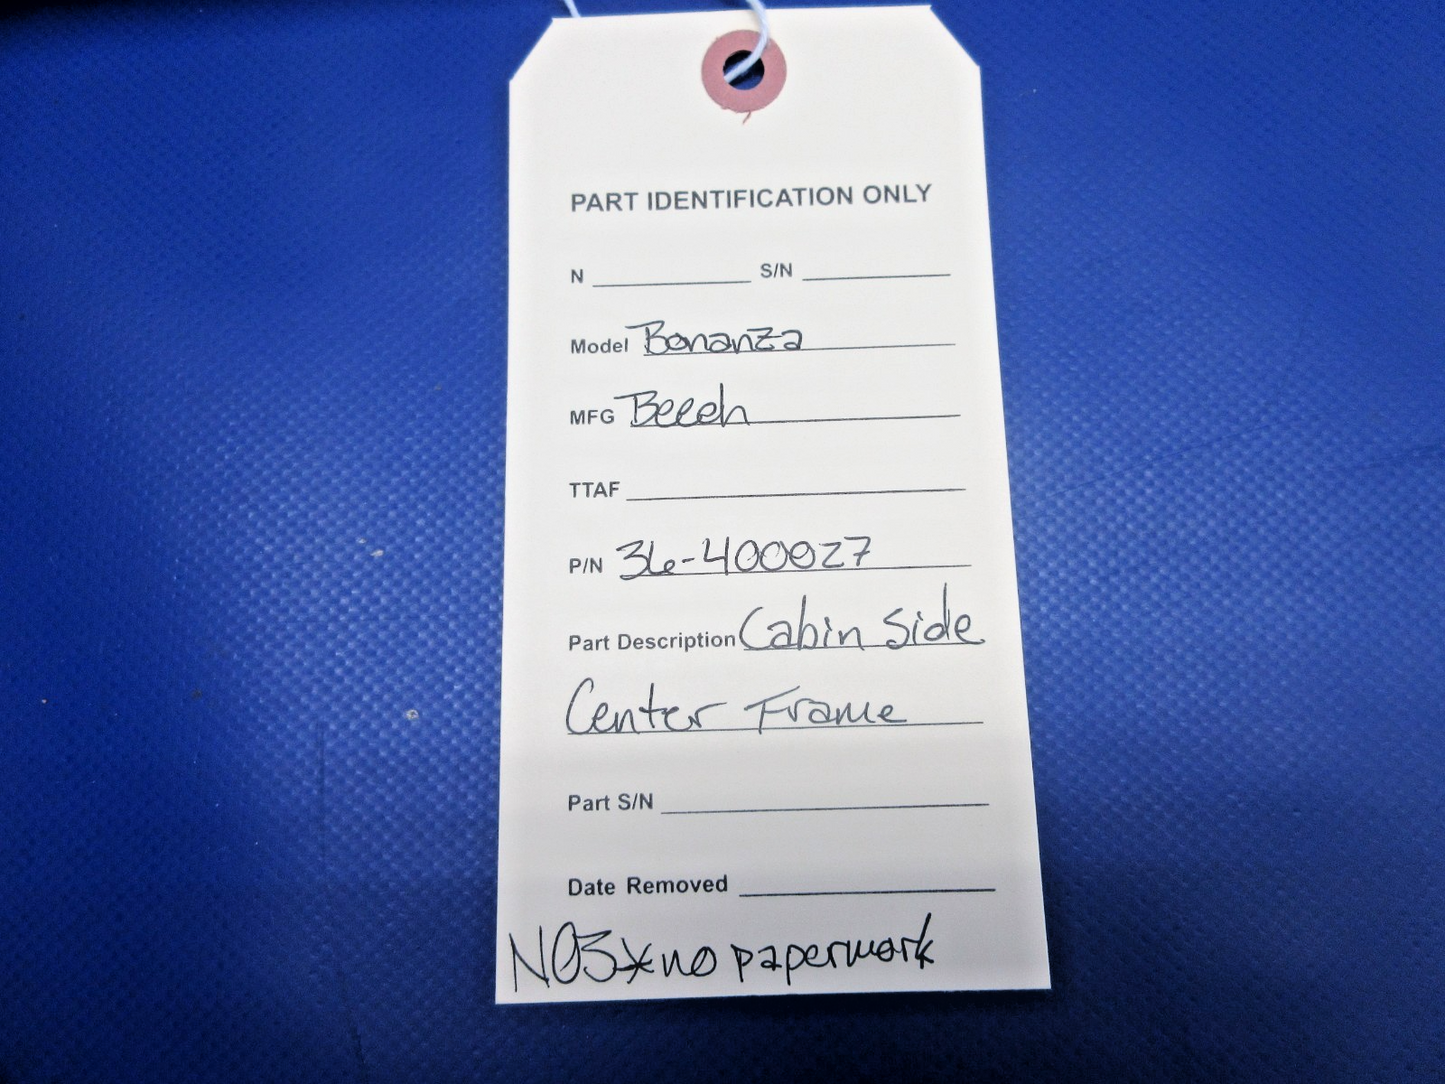 PART IDENTIFICATION ONLY
N S/N
Model Bonanza
MFG Beech
TTAF
P/N 36-400027
Part Description Cabin Side
Center Frame
Part S/N
Date Removed
N03*no paperwork